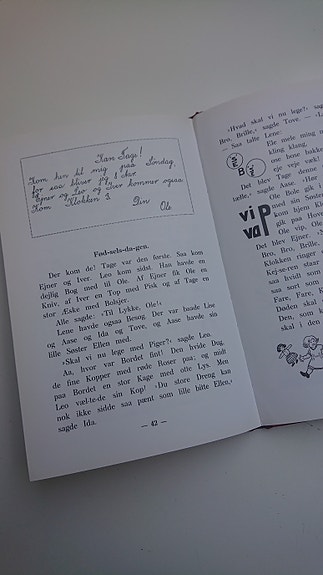 Kære Tage!
Kom hen til mig paa Søndag,
for saa bliver jeg 8 Aar
Ejner og Leo og Iver kommer ogsaa
Kom Klokken 3 Din
Ole
Fød-sels-da-gen.
Der kom de! Tage var den første. Saa kom
Ejner og Iver. Leo kom sidst. Han havde en
dejlig Bog med til Ole. Af Ejner fik Ole en
Kniv, af Iver en Top med Pisk og af Tage en
stor Æske med Bolsjer.
Alle sagde: ›Til Lykke, Ole!‹
Lene havde ogsaa Besøg. Der var baade Lise
og Aase og Ida og Tove, og Aase havde sin
lille Søster Ellen med.
›Skal vi nu lege med Piger?‹ sagde Leo.
Aa, hvor var Bordet fint! Den hvide Dug,
de fine Kopper med røde Roser paa; og midt
paa Bordet en stor Kage med otte Lys. Men
Leo væl-te-de sin Kop! ›Du store Dreng kan
nok ikke sidde saa pænt som lille bitte Ellen,‹
sagde Ida.
— 42 —
›Hvad skal vi nu lege?‹
Bro, Brille,‹ sagde Tove. ›L
— Saa talte Lene
Ele mele ming m
kling klang,
SE
B
one hene bakke
eje veje væk!
Det blev Tage
tælle,‹ sagde Aase. ›Hør
Ole Bole gik i
vi
vaP
gik paa Hoved
med sin Søster
kom hjem Kl
Ole vip, Ole
Det blev Ejner.
Bro, Bro, Brille,
Klokken ringer
Kej-se-ren staar
saa hvidt som
saa sort som
Fare, Fare,
Døden, Døden
Den, som k
skal i den